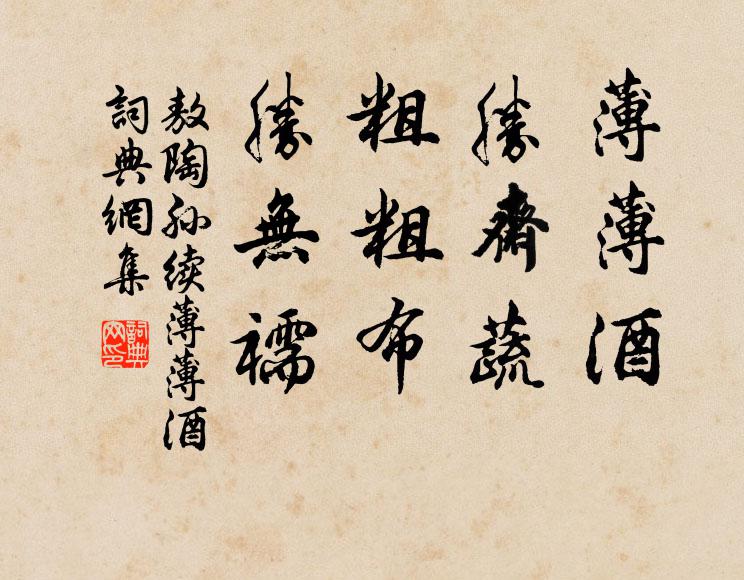 薄薄酒
勝齏蔬
粗粗布
勝無襦
敖陶孙续薄薄酒
詞典網集
詞典网印